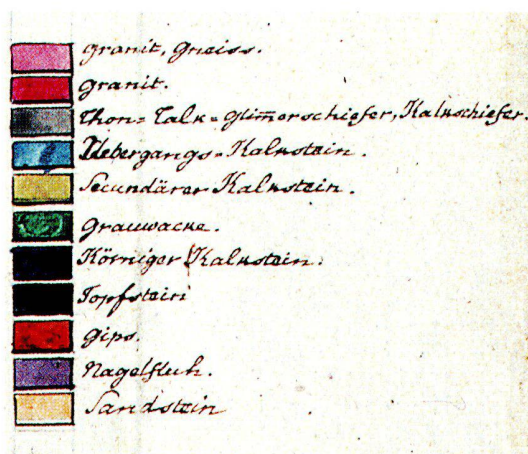 Granit, Gneiss.
Granit.
Thon= Talk= Glim̅erschiefer, Kalkschiefer.
Uebergangs=Kalkstein.
Secundärer Kalkstein.
Grauwacke.
Körniger Kalkstein.
Topfstein
Gips.
Nagelfluh.
Sandstein